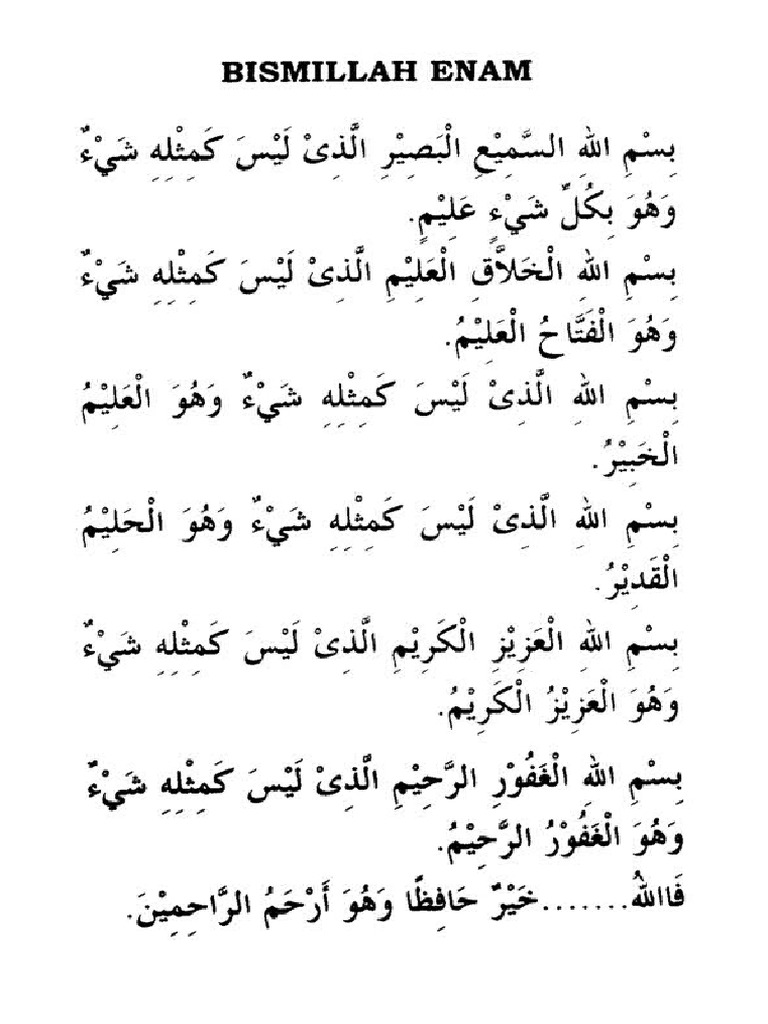 BISMILLAH ENAM
بِسْمِ اللهِ السَّمِيْعِ الْبَصِيْرِ الَّذِىْ لَيْسَ كَمِثْلِهِ شَيْءٌ
وَهُوَ بِكُلِّ شَيْءٍ عَلِيْمٍ.
بِسْمِ اللهِ الْخَلاَّقِ الْعَلِيْمِ الَّذِىْ لَيْسَ كَمِثْلِهِ شَيْءٌ
وَهُوَ الْفَتَّاحُ الْعَلِيْمُ.
بِسْمِ اللهِ الَّذِىْ لَيْسَ كَمِثْلِهِ شَيْءٌ وَهُوَ الْعَلِيْمُ
الْخَبِيْرُ.
بِسْمِ اللهِ الَّذِىْ لَيْسَ كَمِثْلِهِ شَيْءٌ وَهُوَ الْحَلِيْمُ
الْقَدِيْرُ.
بِسْمِ اللهِ الْعَزِيْزِ الْكَرِيْمِ الَّذِىْ لَيْسَ كَمِثْلِهِ شَيْءٌ
وَهُوَ الْعَزِيْزُ الْكَرِيْمُ.
بِسْمِ اللهِ الْغَفُوْرِ الرَّحِيْمِ الَّذِىْ لَيْسَ كَمِثْلِهِ شَيْءٌ
وَهُوَ الْغَفُوْرُ الرَّحِيْمُ.
فَاللهُ.......خَيْرٌ حَافِظًا وَهُوَ أَرْحَمُ الرَّاحِمِيْنَ.